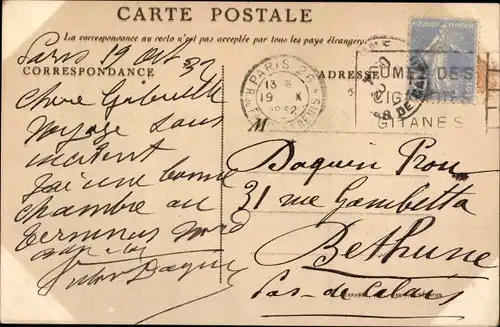 CARTE POSTALE
La correspondance au recto n'est pas acceptée par tous les pays étrangers
CORRESPONDANCE
ADRESSE
PARIS
13
19 X
1932
FUMEZ LES
CIGARETTES
GITANES
Paris 19 Oct 32
Chère Gabrielle
Voyage sans
incident
J'ai une bonne
chambre au
Terminus Nord
Victor Daquin
M
Daquin Prou
31 rue Gambetta
Bethune
Pas-de-Calais